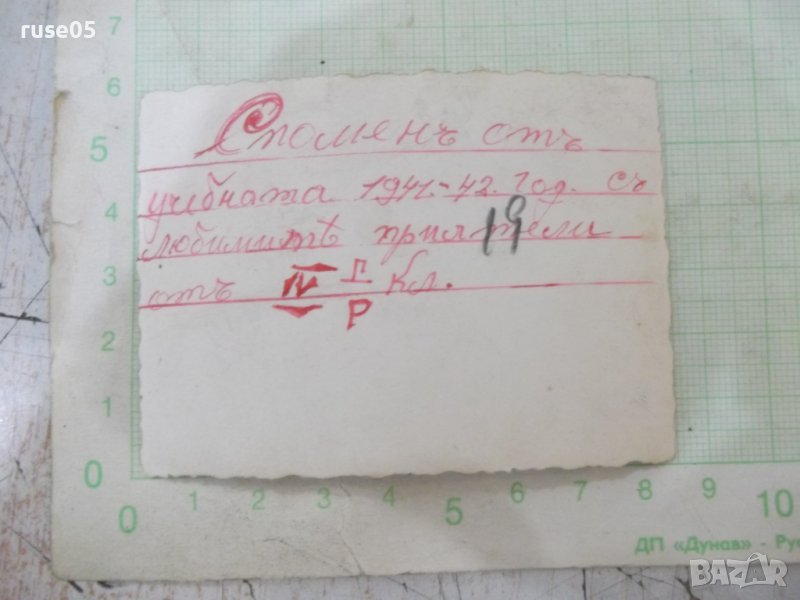 ruse05
7
6
5
4
3
2
1
0
Споменъ отъ
учебната 1941.-42. год. съ
любимитѣ приятели
19
отъ IV Г Кл.
Р
0 1 2 3 4 5 6 7 8 9 10
ДП «Дунав» - Ру
BAZAR